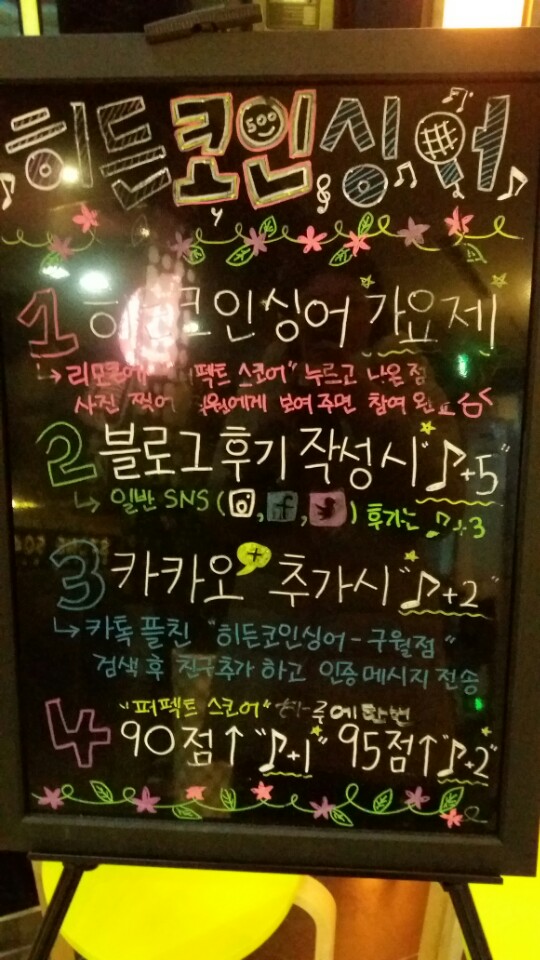 히든코인싱어
500
1 히든코인싱어 가요제
↳ 리모콘에 "퍼펙트 스코어" 누르고 나온 점
사진 찍어 직원에게 보여주면 참여 완료
2 블로그후기 작성시 "♪+5"
↳ 일반 SNS ( , f , ) 후기는 ♪+3
3 카카오+ 추가시 "♪+2"
↳ 카톡 플친 "히든코인싱어-구월점"
검색 후 친구추가 하고 인증메시지 전송
"퍼펙트 스코어" 하루에 한번
4 90점↑ "♪+1" 95점↑ "♪+2"